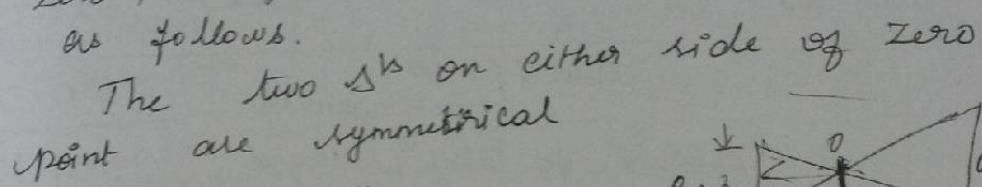 as follows.
The two Δˡˢ on either side of zero
point are symmetrical
0